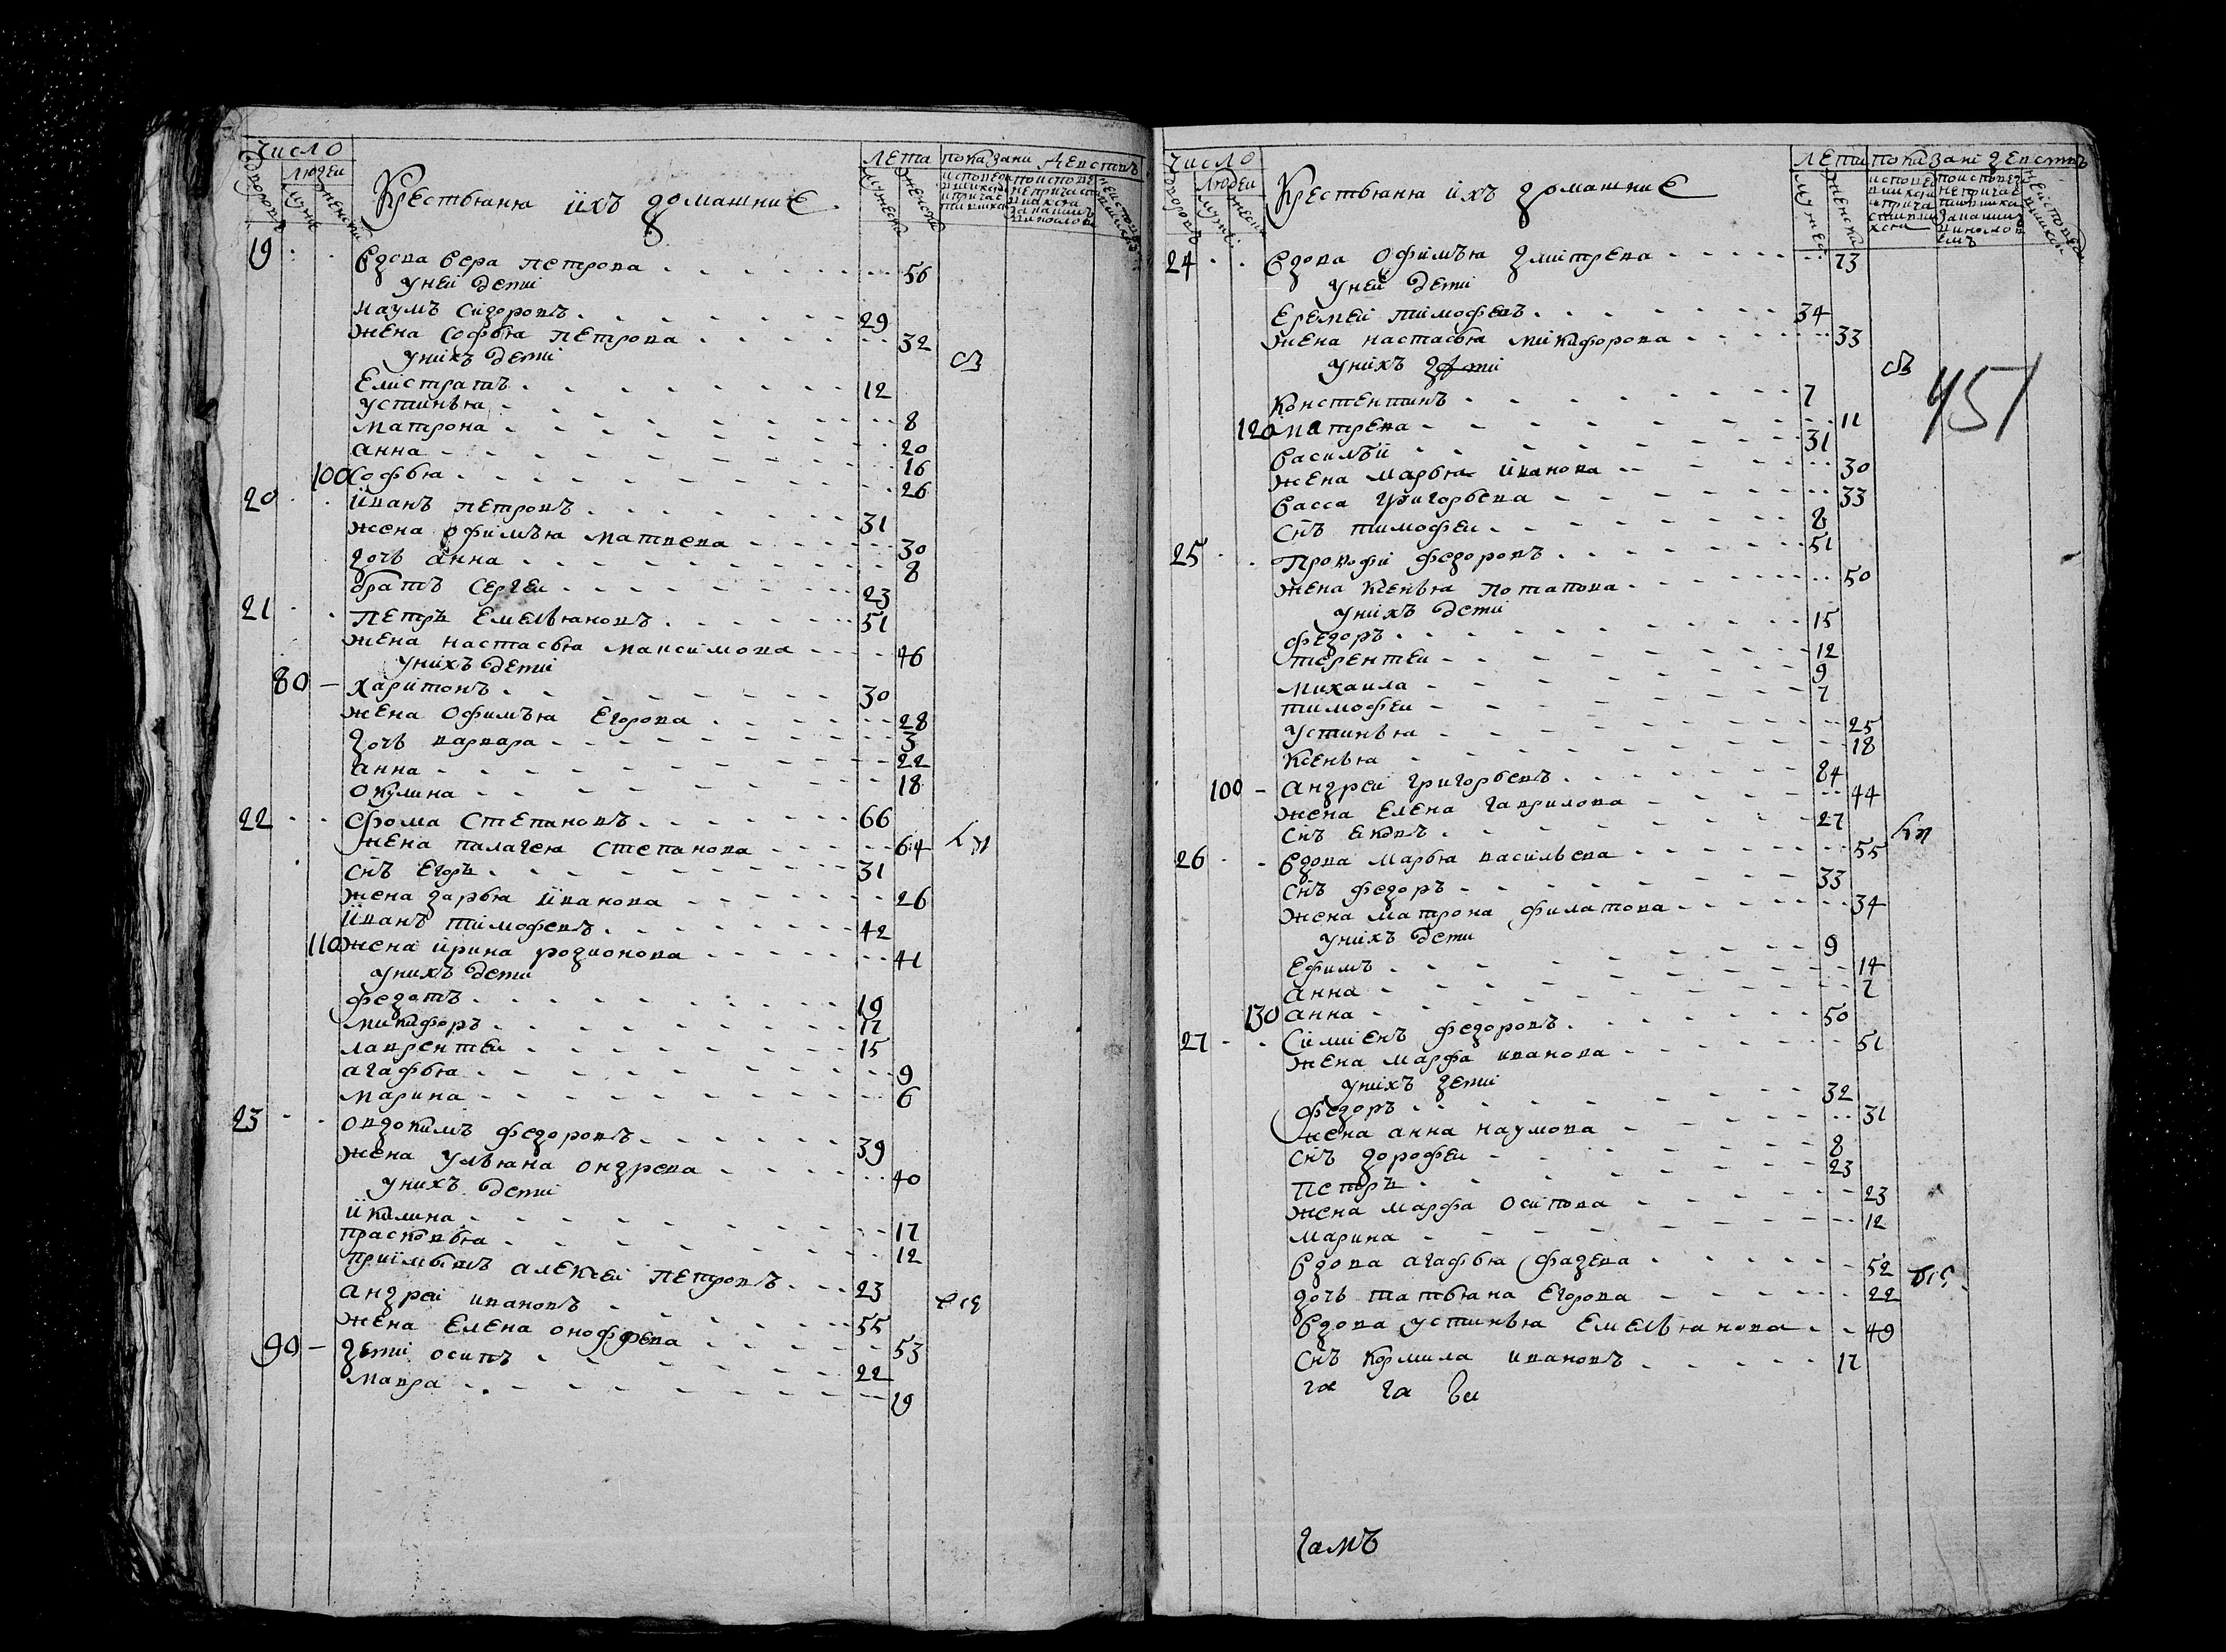 число
люден
дворовъ
мужес
женски
Крестьяня ихъ домашние
лета
мужеска
женска
показани действъ
19
вдова вера петрова 56
у ней дети
наумъ сидоровъ 29
жена софья петрова 32
у нихъ дети
елистратъ 12
устинья 8
матрона 20
анна 16
100 софья 26
20 иванъ петровъ 31
жена офимья матвева 30
дочь анна 8
братъ сергеи 23
21 петръ емельяновъ 51
жена настасья максимова 46
у нихъ дети
80 харитонъ 30
жена офимья егорова 28
дочь варвара 3
анна 22
окулина 18
22 фома степановъ 66
жена палагея степанова 64
снъ егоръ 31
жена дарья иванова 26
иванъ тимофевъ 42
110 жена ирина родионова 41
у нихъ дети
федотъ 19
микифоръ 17
лаврентеи 15
агафья 9
марина 6
23 овдокимъ федоровъ 39
жена ульяна ондрева 40
у нихъ дети
икилина 17
прасковья 12
приимышъ алексеи петровъ 23
андреи ивановъ 55
жена елена оноффева 53
90 дети осипъ 22
мавра 19
число
люден
дворовъ
мужес
женски
Крестьяня ихъ домашние
лети
мужес
женска
показани действъ
451
24 вдова офимья дмитрева 73
у ней дети
еремеи тимофевъ 34
жена настасья микифорова 33
у нихъ дети
констентинъ 7
120 матрена 11
василеи 31
жена марья иванова 30
васса григорьева 33
снъ тимофеи 8
25 прокофи федоровъ 51
жена ксенья потапова 50
у нихъ дети
федоръ 15
терентеи 12
михаила 9
тимофеи 7
устинья 25
ксенья 18
100 андреи григорьевъ 84
жена елена гаврилова 44
снъ яковъ 27
26 вдова марья васильева 55
снъ федоръ 33
жена матрона филатова 34
у нихъ дети
ефимъ 9
анна 14
130 анна 7
27 симиенъ федоровъ 50
жена марфа иванова 51
у нихъ дети
федоръ 32
жена анна наумова 31
снъ дорофеи 8
петръ 23
жена марфа осипова 23
марина 12
вдова агафья фадева 52
дочь татьяна егорова 22
вдова устинья емельянова 49
снъ кормила ивановъ 17
гамъ